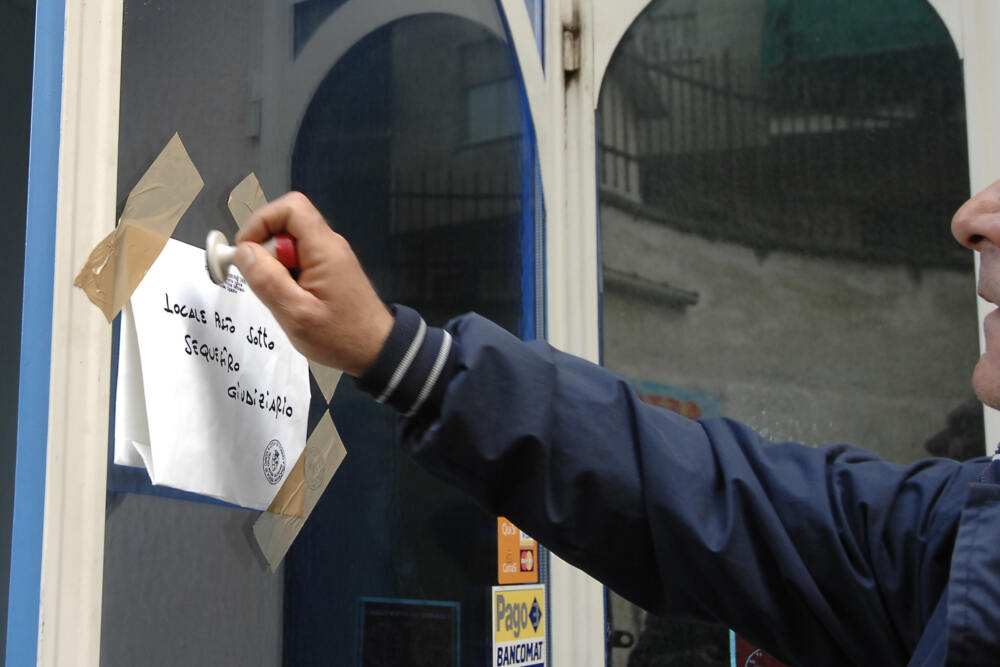 LOCALE POSTO SOTTO
SEQUESTRO
GIUDIZIARIO
Qui si
CartaSi
Pago
BANCOMAT